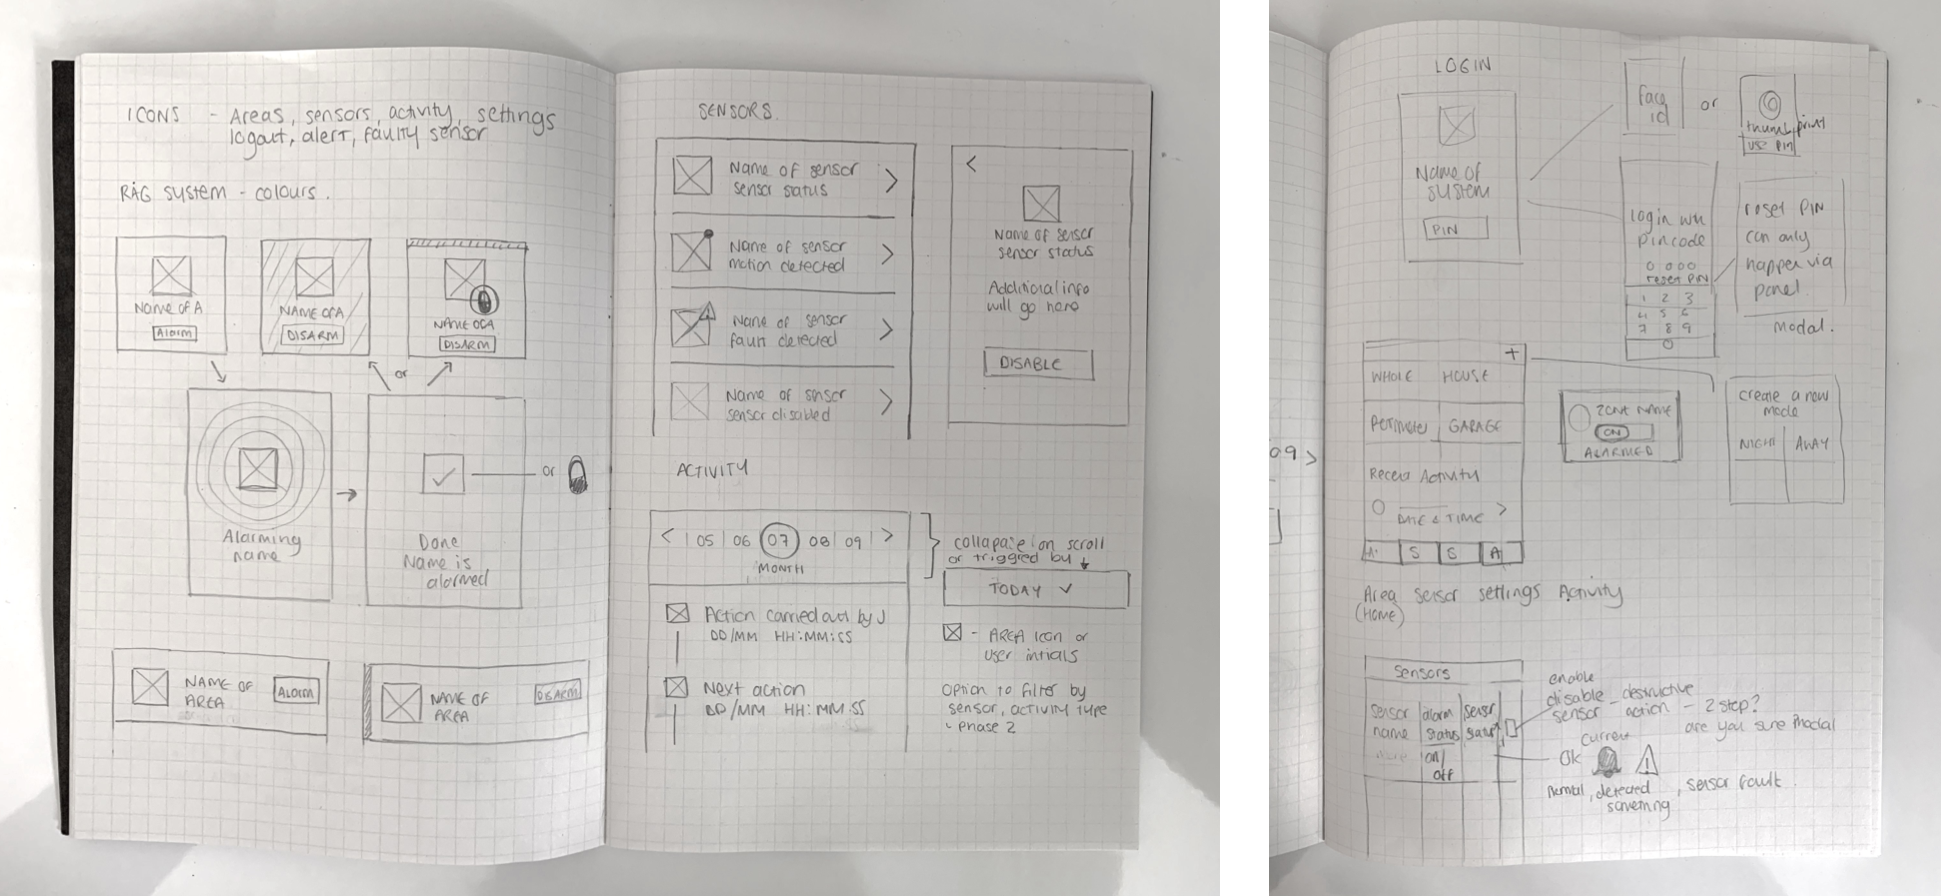 ICONS - Areas, sensors, activity, settings
logout, alert, faulty sensor
RAG SYSTEM - colours.
Name of A
Alarm
NAME OF A
DISARM
NAME OF A
DISARM
or
Alarming
name
Done
Name is
alarmed
or
NAME OF
AREA
ALARM
NAME OF
AREA
DISARM
SENSORS.
Name of sensor
sensor status
>
Name of sensor
motion detected
>
Name of sensor
fault detected
>
Name of sensor
sensor disabled
>
<
Name of sensor
sensor status
Additional info
will go here
DISABLE
ACTIVITY
< 05 | 06 | 07 | 08 | 09 | >
MONTH
on scroll
or triggered by
TODAY
Action carried out by J
DD/MM HH:MM:SS
Next action
DD/MM HH:MM:SS
- AREA icon or
user initials
Option to filter by
sensor, activity type
- phase 2
09 >
LOGIN
Name of
system
PIN
Face
id
or
thumb print
USE PIN
login with
pincode
0 0 0 0
reset PIN
1 2 3
4 5 6
7 8 9
0
reset PIN
can only
happen via
panel
modal.
+
WHOLE HOUSE
Perimeter | GARAGE
Recent Activity
DATE & TIME >
A. S S A
ZONE NAME
ON
ALARMED
create a new
mode
NIGHT | AWAY
Area sensor settings Activity
(HOME)
sensors
sensor
name
alarm
status
sensor
status
on/
off
enable
disable - destructive
sensor action - 2 step?
are you sure modal
current
OK
normal, detected, sensor fault.
something